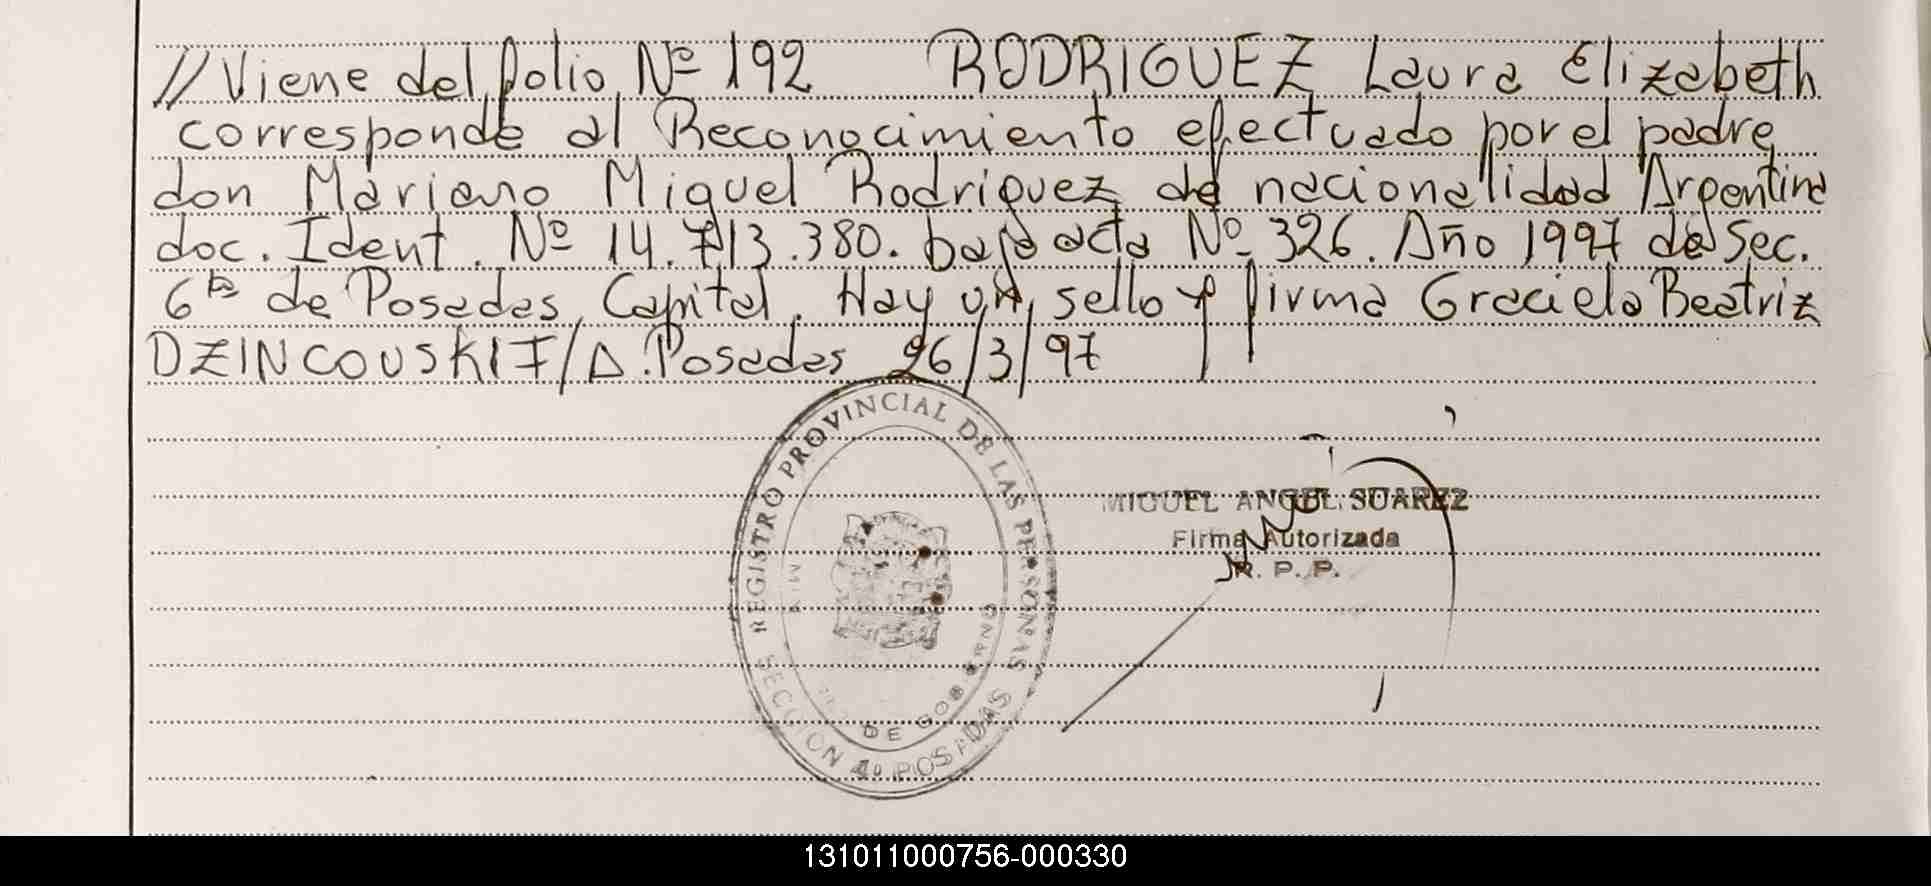 // Viene del folio Nº 192 RODRIGUEZ Laura Elizabeth
corresponde al Reconocimiento efectuado por el padre
don Mariano Miguel Rodriguez de nacionalidad Argentina
doc. Ident. Nº 14.713.380. bajo acta Nº 326. Año 1997 de Sec.
6ta de Posadas Capital. Hay un sello y firma Graciela Beatriz
DZINCOUSKI F/D. Posadas 26/3/97
REGISTRO PROVINCIAL DE LAS PERSONAS
SECCION 4º POSADAS
DE GOBIERNO
MIGUEL ANGEL SUAREZ
Firma Autorizada
R. P. P.
131011000756-000330